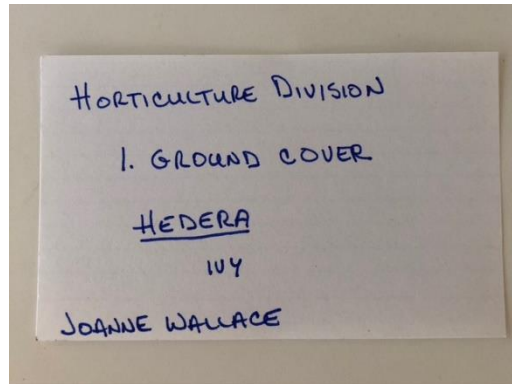 HORTICULTURE DIVISION
1. GROUND COVER
HEDERA
IVY
JOANNE WALLACE